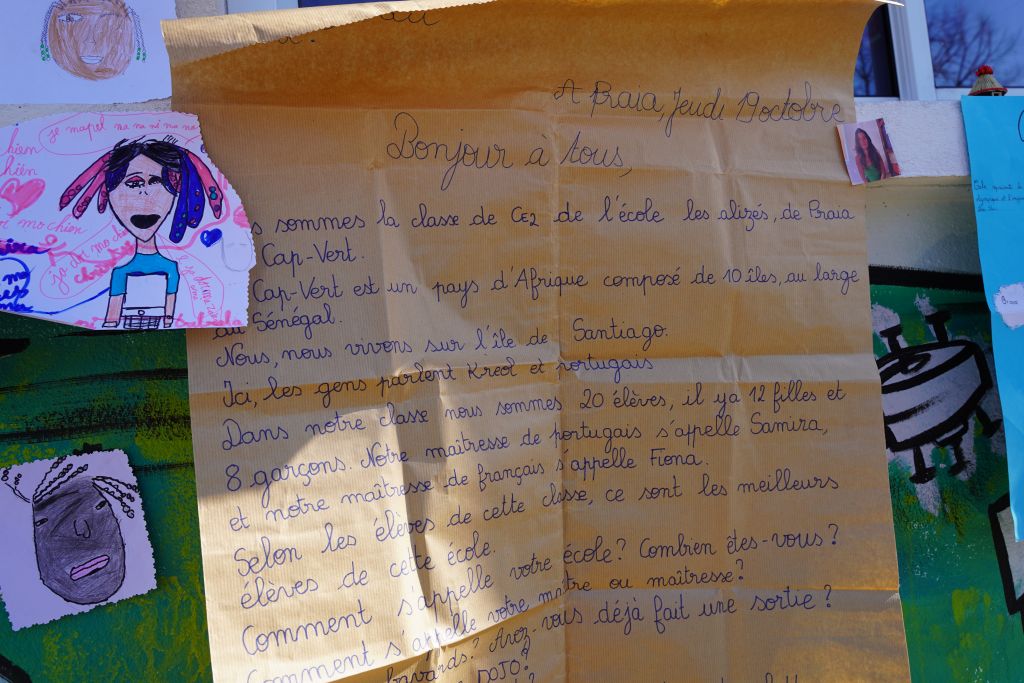 A Praia, Jeudi 19 octobre
Bonjour à tous,
s sommes la classe de CE2 de l'école les alizés, de Praia
Cap-Vert.
Cap-Vert est un pays d'Afrique composé de 10 îles, au large
du Sénégal.
Nous, nous vivons sur l'île de Santiago.
Ici, les gens parlent Kreol et portugais
Dans notre classe nous sommes 20 élèves, il y a 12 filles et
8 garçons. Notre maîtresse de portugais s'appelle Samira,
et notre maîtresse de français s'appelle Fiona.
Selon les élèves de cette classe, ce sont les meilleurs
élèves de cette école.
Comment s'appelle votre école? Combien êtes-vous?
Comment s'appelle votre maître ou maîtresse?
bavards? Avez-vous déjà fait une sortie?
DOJO?
je mapel na na ni na no
chien
hien
mo chien